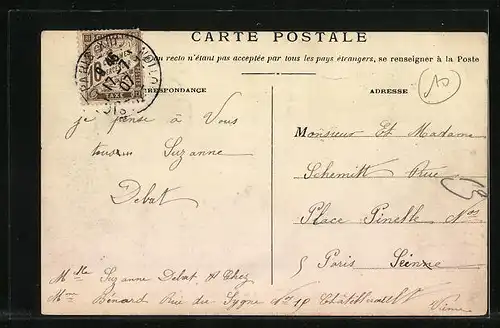 CARTE POSTALE
recto n'étant pas acceptée par tous les pays étrangers, se renseigner à la Poste
RRESPONDANCE
ADRESSE
je pense à Vous
tous Suzanne
Debat
Monsieur Et Madame
Schemitt Rue
Place Pinelle Nos
5 Paris Seine
Mlle Suzanne Debat, Chez
Mme Bénard Rue du Cygne No 10 Châtellerault
Vienne
TAXE